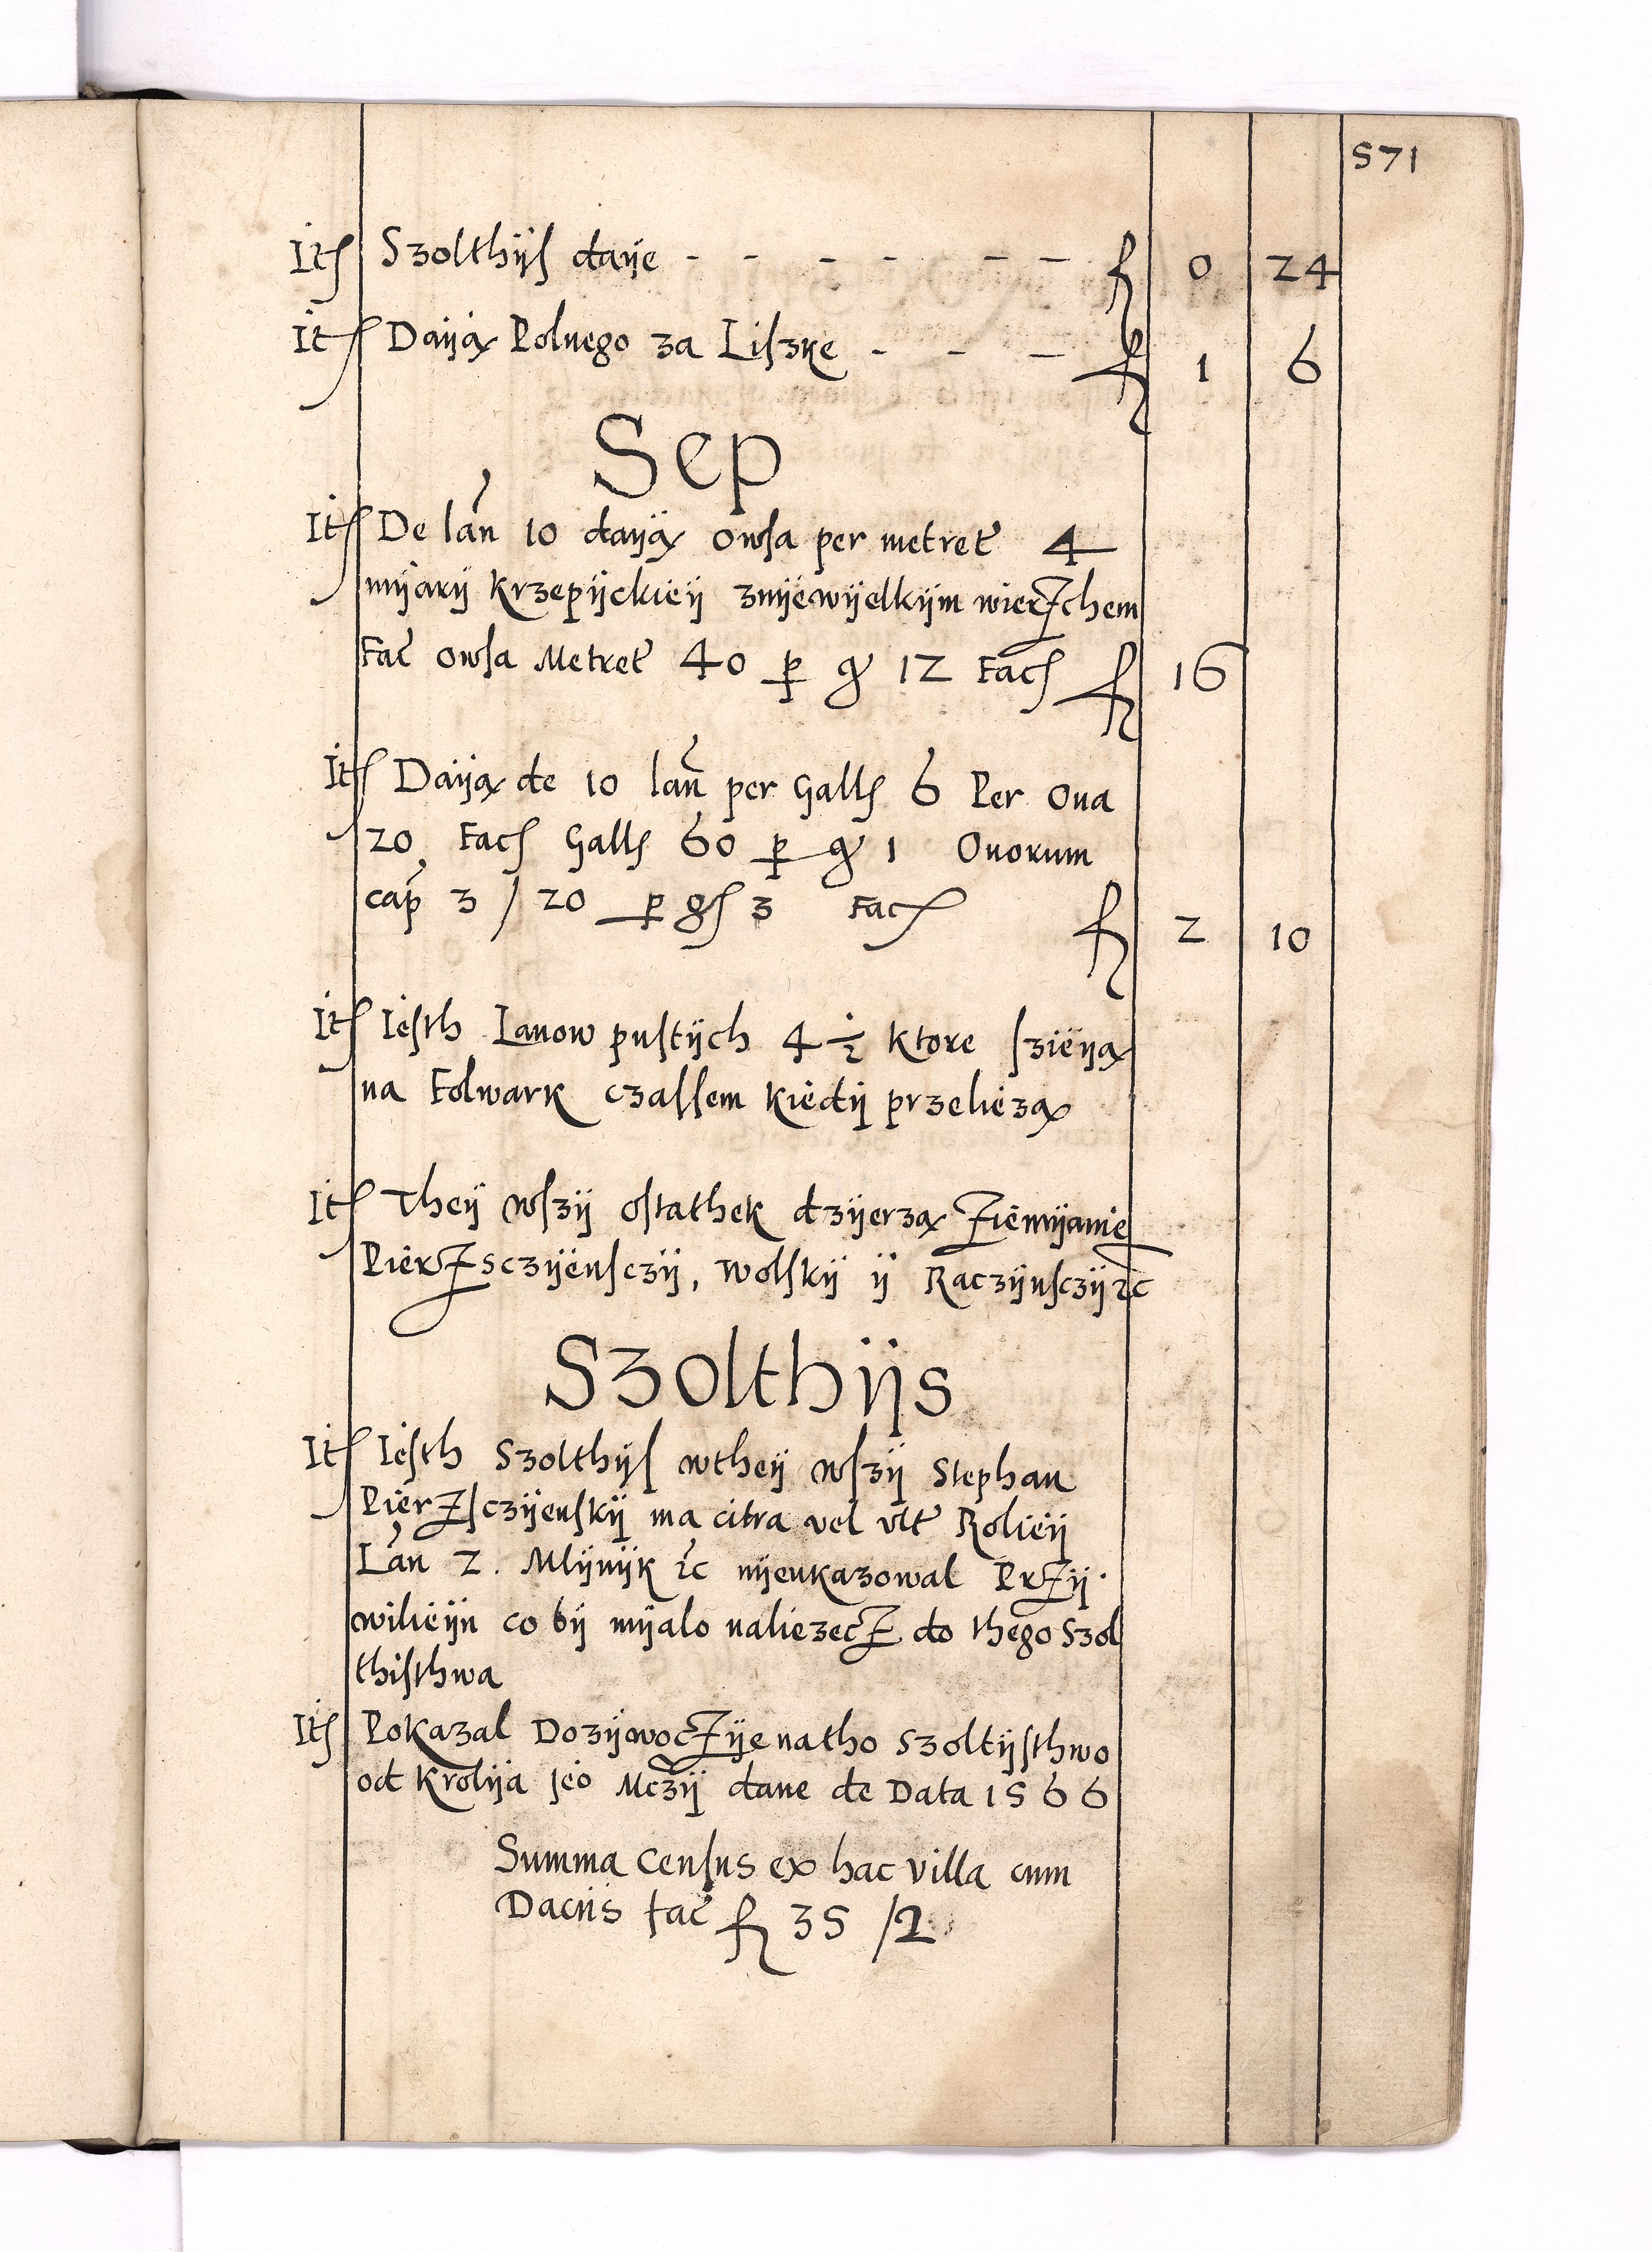 571
Itſ Szolthÿſ daÿe - - - - - - fl 0 24
Itſ Daÿą Polnego za Liſzke - - - fl 1 6
Sep
Itſ De lan̄ 10 daÿą owſa per metret̄ 4
mÿarÿ Krzepÿckieÿ znÿewÿelkÿm wierƶchem
Fac̄ owſa Metret̄ 40 p̱ gr 12 Facſ fl 16
Itſ Daÿą de 10 lan̄ per Gallſ 6 Per Oua
20 Facſ Gallſ 60 p̱ gr 1 Ouorum
cap̄ 3 / 20 p̱ gſ 3 Facſ fl 2 10
Itſ Ieſth Lanow puſtÿch 4 ½ Ktore ſzieÿą
na Folwark czaſſem kiedÿ przeliezą
Itſ Theÿ wſzÿ oſtathek dzÿerzą Ƶiemÿanie
Pierƶsczÿenſczÿ, Wolſkÿ ÿ Raczÿnſczÿ ꝛc̄
Szolthÿs
Itſ Ieſth Szolthÿſ wtheÿ wſzÿ Stephan
Pierƶſczÿenſkÿ ma citra vel vlt̄ Rolieÿ
Lan̄ 2. Mlÿnÿk ꝛc̄ nÿeukazowal Prƶÿ
wilieÿn co bÿ mÿalo naliezecƶ do thego Szol
thiſthwa
Itſ Pokazal Dozÿwocƶÿe natho Szoltÿſthwo
od Krolÿa jeo Mczÿ dane de Data 1566
Summa Cenſus ex hac villa cum
Daciis fac̄ fl 35 /2